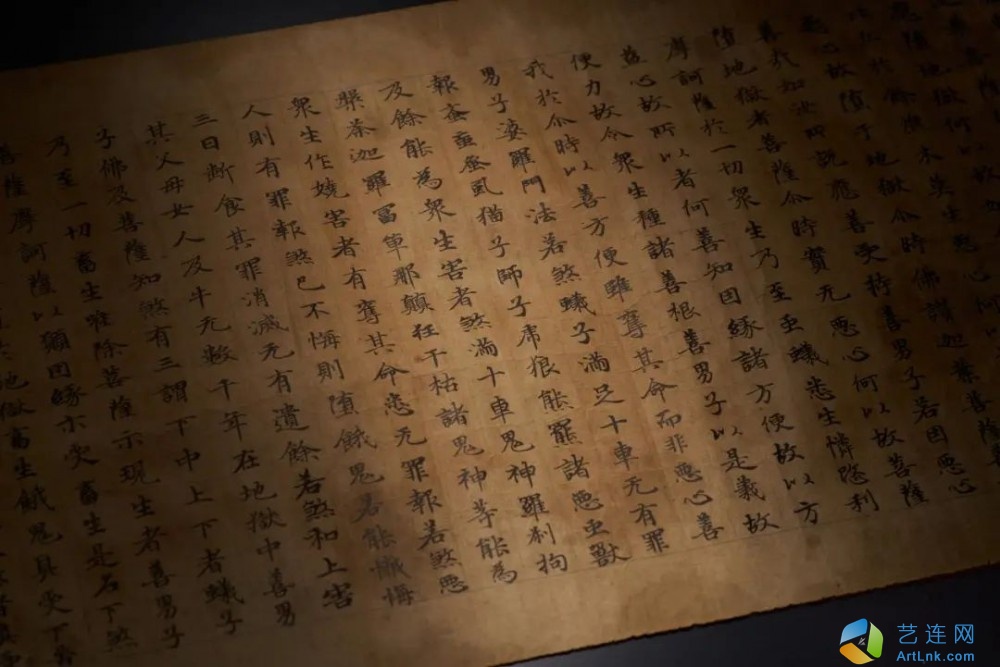 惡心故墮于地獄尒時佛讚迦葉菩薩
善哉如汝所說應善受持善男子若因惡心
墮地獄者菩薩尒時實无惡心何以故菩薩
摩訶薩於一切衆生乃至虫蟻悉生憐愍利
益心故所以者何善知因緣諸方便故以方
便力故令衆生種諸善根善男子以是義故
我於尒時以善方便雖奪其命而非惡心善
男子婆羅門法若煞蟻子滿足十車无有罪
報蚉䖟蚤虱猫子師子虎狼熊羆諸惡虫獸
及餘能為衆生害者煞滿十車鬼神羅剎拘
槃荼迦羅冨單那顛狂干枯諸鬼神等能為
衆生作嬈害者有奪其命悉无罪報若煞惡
人則有罪報煞已不悔則墮餓鬼若能懺悔
三日斷食其罪消滅无有遺餘若煞和上害
其父母女人及牛无数千年在地獄中善男
子佛及菩薩知煞有三謂下中上下者蟻子
乃至一切畜生唯除菩薩示現生者善男子
菩薩摩訶薩以願因緣示受畜生是名下煞
於地獄畜生餓鬼具受下苦
艺连网
ArtLnk.com